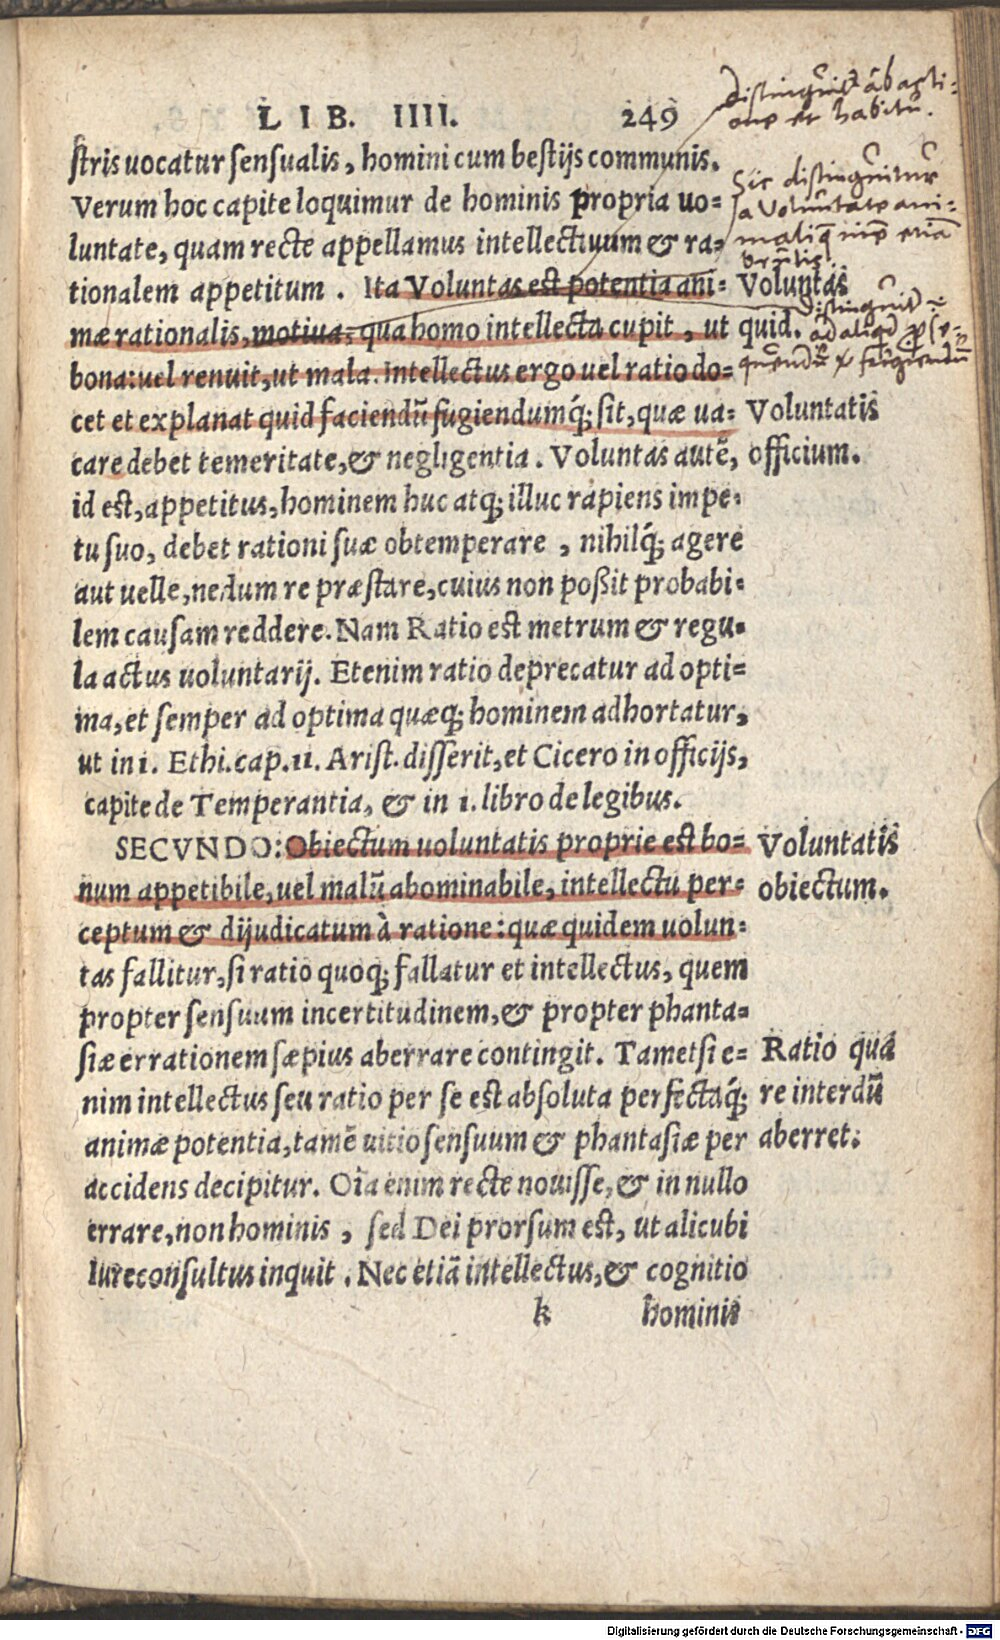 LIB. IIII. 249
distinguit ab acti-
one et habitu.
stris uocatur sensualis, homini cum bestijs communis.
Verum hoc capite loquimur de hominis propria uo-
luntate, quam recte appellamus intellectiuum & ra-
tionalem appetitum. Ita Voluntas est potentia ani-
mæ rationalis, motiua, qua homo intellecta cupit, ut
bona: uel renuit, ut mala. Intellectus ergo uel ratio do-
cet et explanat quid faciendũ fugiendumq́; sit, quæ ua-
care debet temeritate, & negligentia. Voluntas autẽ,
id est, appetitus, hominem huc atq; illuc rapiens impe-
tu suo, debet rationi suæ obtemperare, nihilq́; agere
aut uelle, nedum re præstare, cuius non poßit probabi-
lem causam reddere. Nam Ratio est metrum & regu-
la actus uoluntarij. Etenim ratio deprecatur ad opti-
ma, et semper ad optima quæq; hominem adhortatur,
ut in 1. Ethi. cap. 11. Arist. disserit, et Cicero in officijs,
capite de Temperantia, & in 1. libro de legibus.
SECVNDO: Obiectum uoluntatis proprie est bo-
num appetibile, uel malũ abominabile, intellectu per-
ceptum & dijudicatum à ratione: quæ quidem uolun-
tas fallitur, si ratio quoq; fallatur et intellectus, quem
propter sensuum incertitudinem, & propter phanta-
siæ errationem sæpius aberrare contingit. Tametsi e-
nim intellectus seu ratio per se est absoluta perfectaq́;
animæ potentia, tamẽ uitio sensuum & phantasiæ per
accidens decipitur. Oĩa enim recte nouisse, & in nullo
errare, non hominis, sed Dei prorsum est, ut alicubi
Iureconsultus inquit. Nec etiã intellectus, & cognitio
k hominis
Sic distinguitur
a voluntate ani-
maliũ etiã
brutis.
Voluntas
quid.
distinguit
ad aliqd
fugiendũ
Voluntatis
officium.
Voluntatis
obiectum.
Ratio qua
re interdũ
aberret.
Digitalisierung gefördert durch die Deutsche Forschungsgemeinschaft - DFG